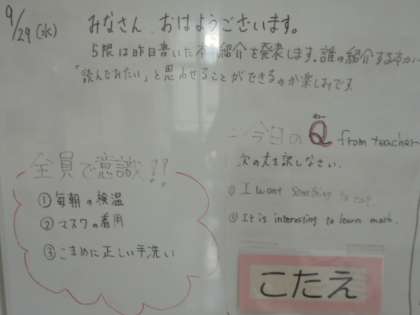 9/29 (水)
みなさん おはようございます。
5限は昨日書いた本紹介を発表します。誰の紹介する本が
「読んでみたい」と思わせることができるのか楽しみです
今日の Q from teacher
次の文を訳しなさい。
全員で意識!!
① 毎朝の検温
② マスクの着用
③ こまめに正しい手洗い
① I want something to eat.
② It is interesting to learn math.
こたえ